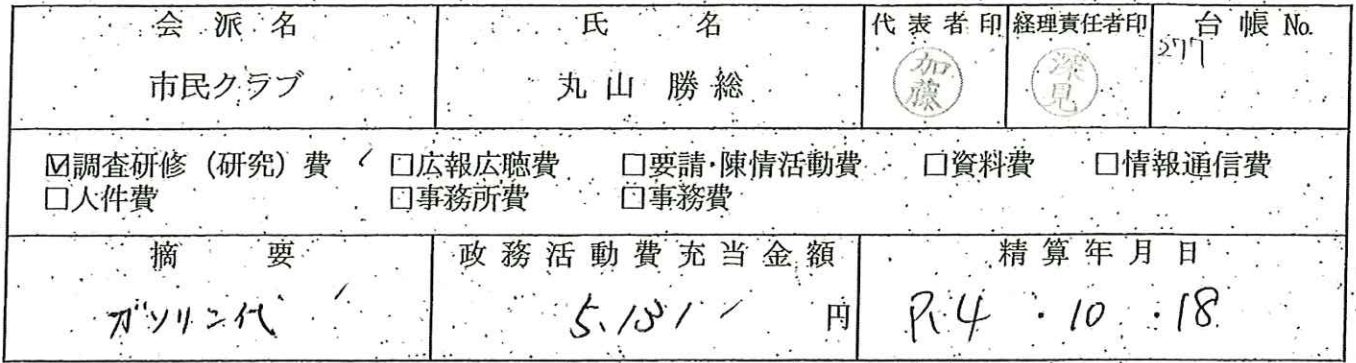 会派名 氏名 代表者印 経理責任者印 台帳No.
市民クラブ 丸山 勝総 加藤 深見 277
☑調査研修（研究）費 □広報広聴費 □要請・陳情活動費 □資料費 □情報通信費
□人件費 □事務所費 □事務費
摘要 政務活動費充当金額 精算年月日
ガソリン代 5,131 円 R4・10・18